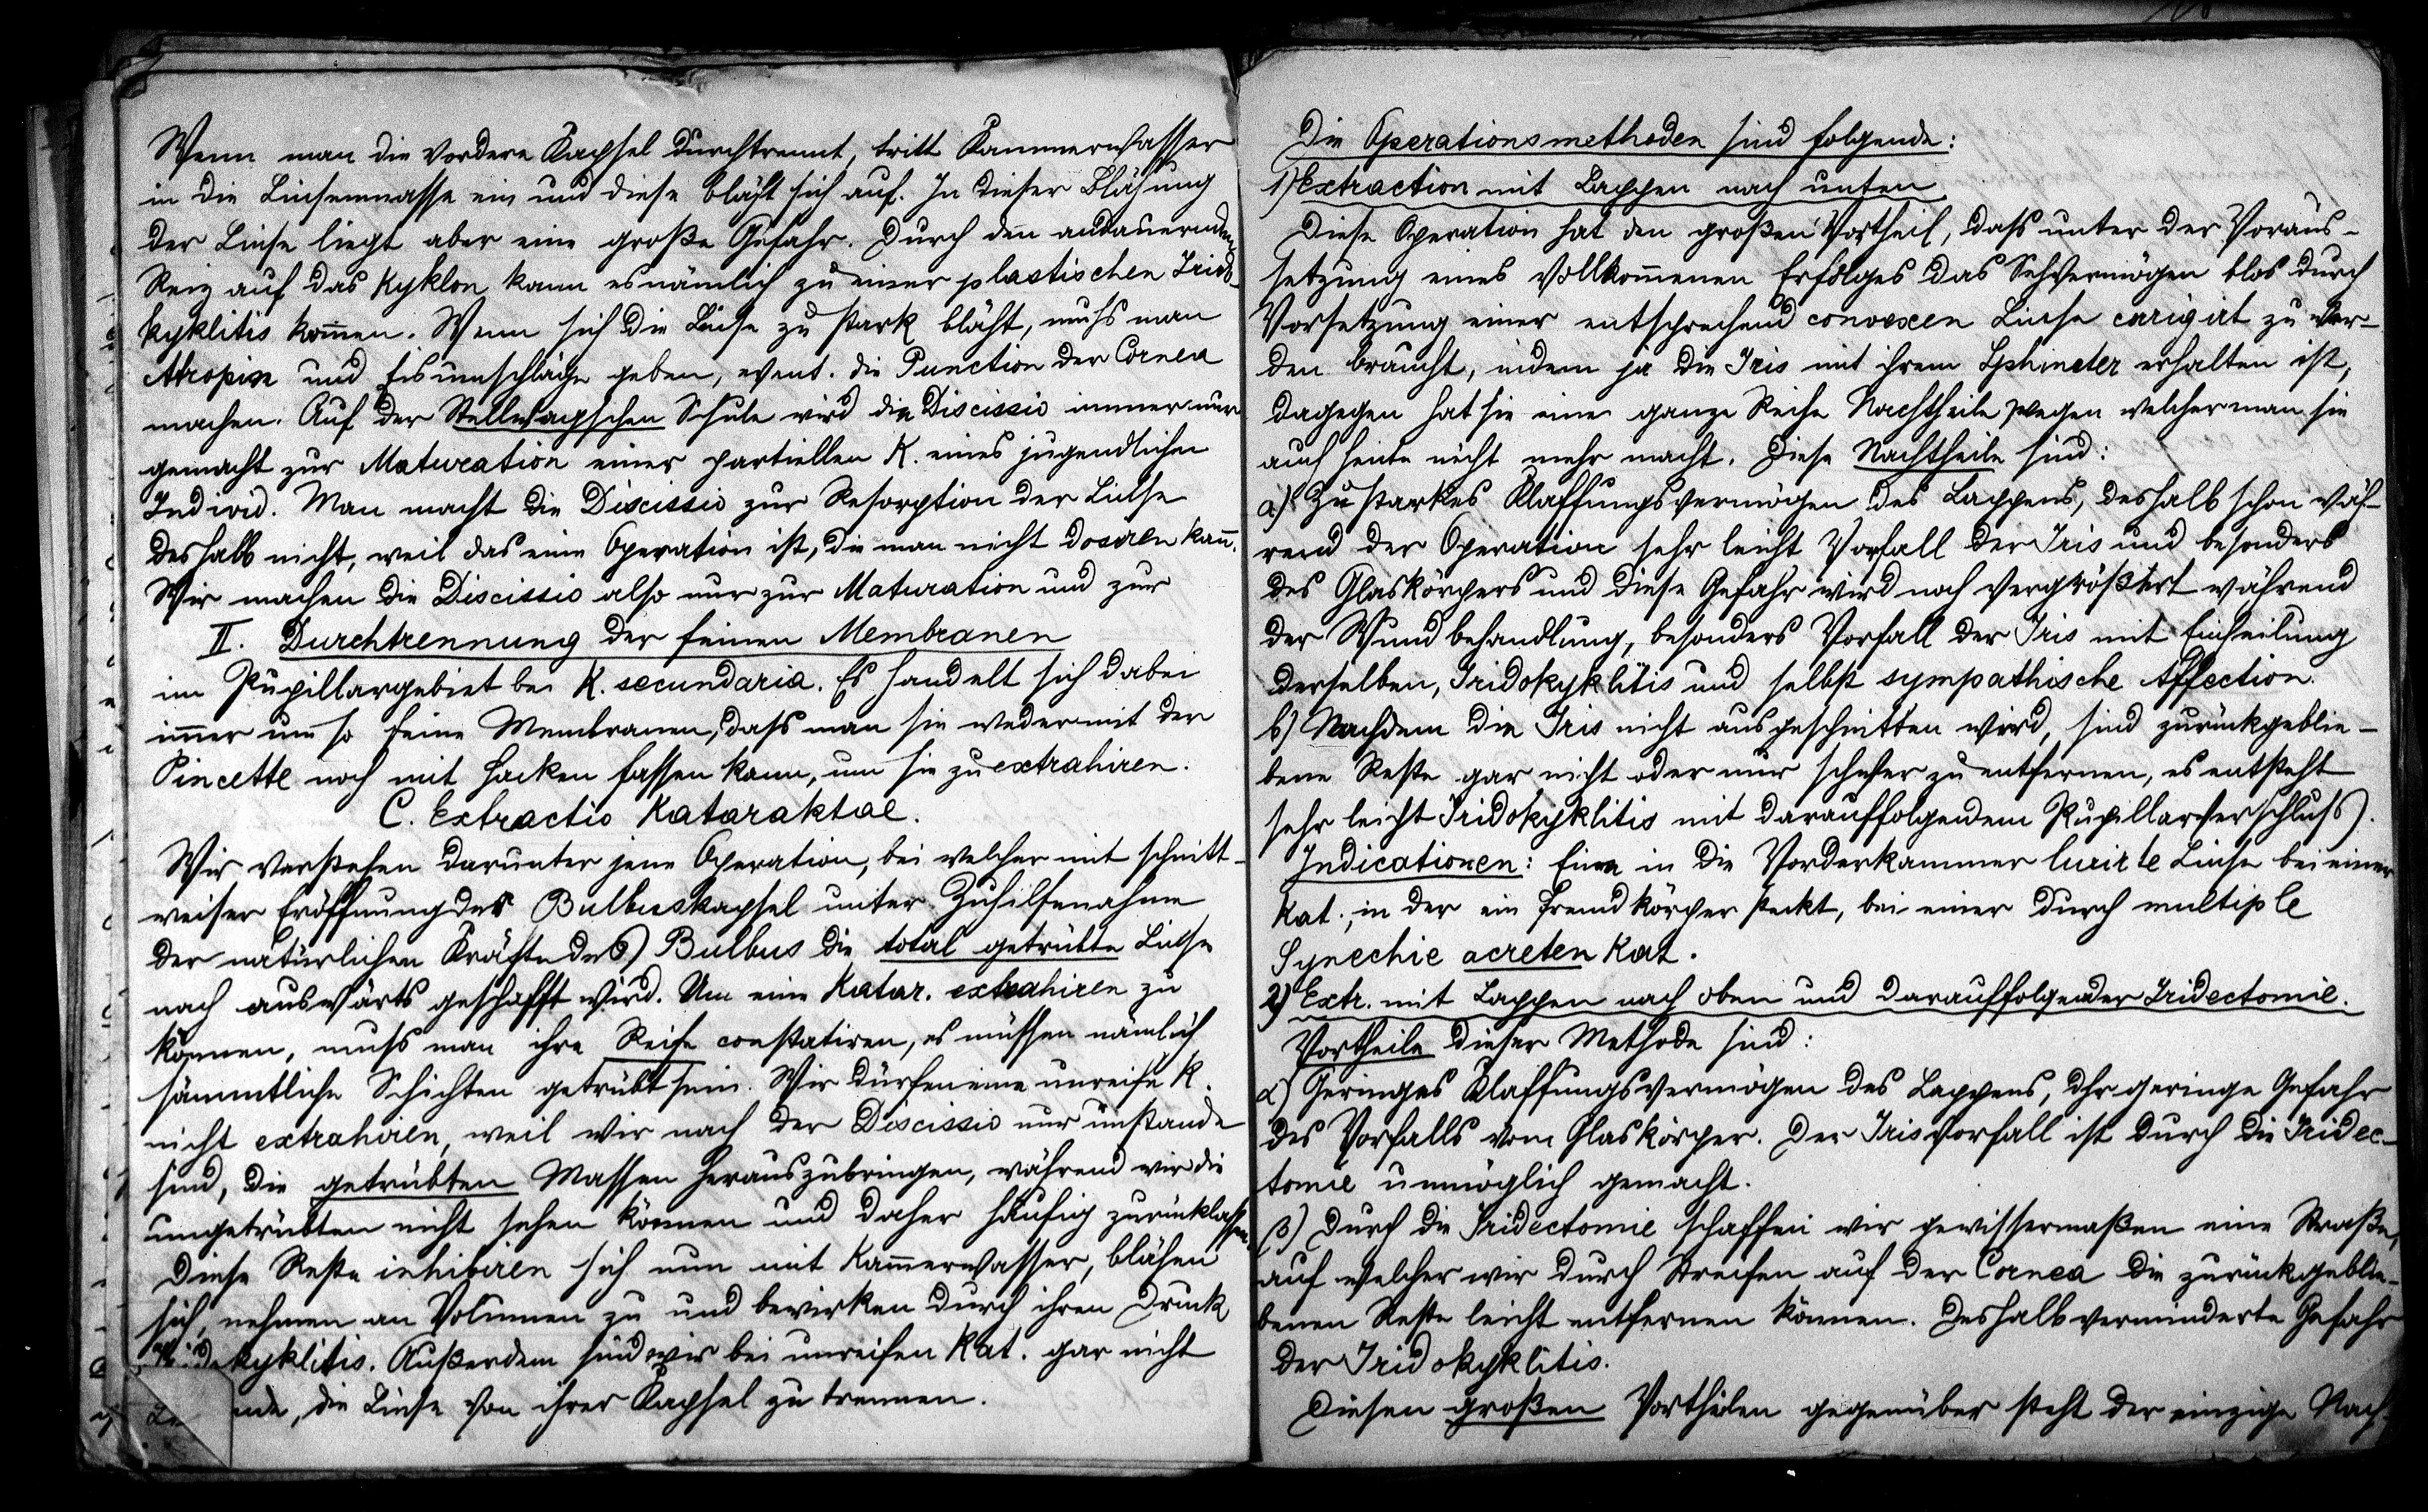 Wenn man die vordere Kapsel durchtrennt, tritt Kammerwasser
in die Linsenmasse ein und diese bläht sich auf. In dieser Blähung
der Linse liegt aber eine große Gefahr. Durch den andauernden
Reiz auf das Kyklon kann es nämlich zu einer plastischen Irido-
kyklitis kom̄en. Wenn sich die Linse zu stark bläht, muss man
Atropin und Eisumschläge geben, event. die Punction der Cornea
machen. Auf der Stellwagschen Schule wird die Discissio immer nur
gemacht zur Maturation einer partiellen K. eines jugendlichen
Individ. Man macht die Discissio zur Resorption der Linse
deshalb nicht, weil das eine Operation ist, die man nicht dosiren kan̄.
Wir machen die Discissio also nur zur Maturation und zur
II. Durchtrennung der feinen Membranen
im Pupillargebiet bei K. secundaria. Es handelt sich dabei
im̄er um so feine Membranen, dass man sie weder mit der
Pincette noch mit Hacken fassen kann, um sie zu extrahiren.
C. Extractio Kataraktae.
Wir verstehen darunter jene Operation, bei welcher mit schnitt-
weiser Eröffnung der Bulbuskapsel unter Zuhilfenahme
der natürlichen Kräfte des Bulbus die total getrübte Linse
nach auswärts geschafft wird. Um eine Katar. extrahiren zu
können, muss man ihre Reife constatiren, es müssen nämlich
sämmtliche Schichten getrübt sein. Wir dürfen eine unreife K.
nicht extrahiren, weil wir nach der Discissio nur imstande
sind, die getrübten Massen herauszubringen, während wir die
ungetrübten nicht sehen können und daher häufig zurücklassen.
Diese Reste inhibiren sich nun mit Kam̄erwasser, blähen
sich, nehmen an Volumen zu und bewirken durch ihren Druck
Iridokyklitis. Außerdem sind wir bei unreifen Kat. gar nicht
nde, die Linse von ihrer Kapsel zu trennen.
Die Operationsmethoden sind folgende:
1) Extraction mit Lappen nach unten.
Diese Operation hat den großen Vortheil, dass unter der Voraus-
setzung eines vollkom̄enen Erfolges das Sehvermögen blos durch
Vorsetzung einer entsprechend convexen Linse corrigirt zu wer-
den braucht, indem ja die Iris mit ihrem Sphincter erhalten ist,
dagegen hat sie eine ganze Reihe Nachtheile wegen welcher man sie
auch heute nicht mehr macht. Diese Nachtheile sind:
a) Zu starkes Klaffungsvermögen des Lappens, deshalb schon wäh-
rend der Operation sehr leicht Vorfall der Iris und besonders
des Glaskörpers und diese Gefahr wird noch vergrößert während
der Wundbehandlung, besonders Vorfall der Iris mit Einheilung
derselben, Iridokyklitis und selbst sympathische Affection.
b) Nachdem die Iris nicht ausgeschnitten wird, sind zurückgeblie-
bene Reste gar nicht oder nur schwer zu entfernen, es entsteht
sehr leicht Iridokyklitis mit darauffolgendem Pupillarverschluss).
Indicationen: Eine in die Vorderkammer luxirte Linse bei einer
Kat., in der ein Fremdkörper steckt, bei einer durch multiple
Synechie acreten Kat.
2) Extr. mit Lappen nach oben und darauffolgender Iridectomie.
Vortheile dieser Methode sind:
α) Geringes Klaffungsvermögen des Lappens, dhr geringe Gefahr
des Vorfalls vom Glaskörper. Der Irisvorfall ist durch die Iridec-
tomie unmöglich gemacht.
β) Durch die Iridectomie schaffen wir gewissermaßen eine Straße,
auf welcher wir durch Streifen auf der Cornea die zurückgeblie-
benen Reste leicht entfernen können. Deshalb verminderte Gefahr
der Iridokyklitis.
Diesen großen Vortheilen gegenüber steht der einzige Nach-